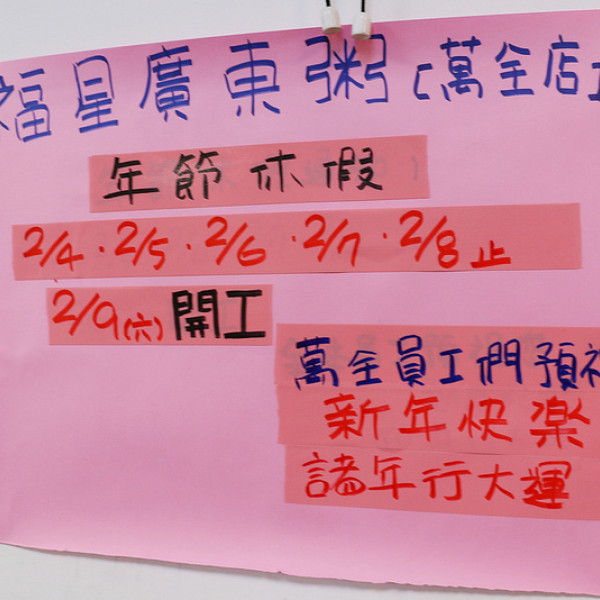 福星廣東粥[萬全店]
年節休假
2/4.2/5.2/6.2/7.2/8止
2/9(六)開工
萬全員工們預祝
新年快樂
諸年行大運